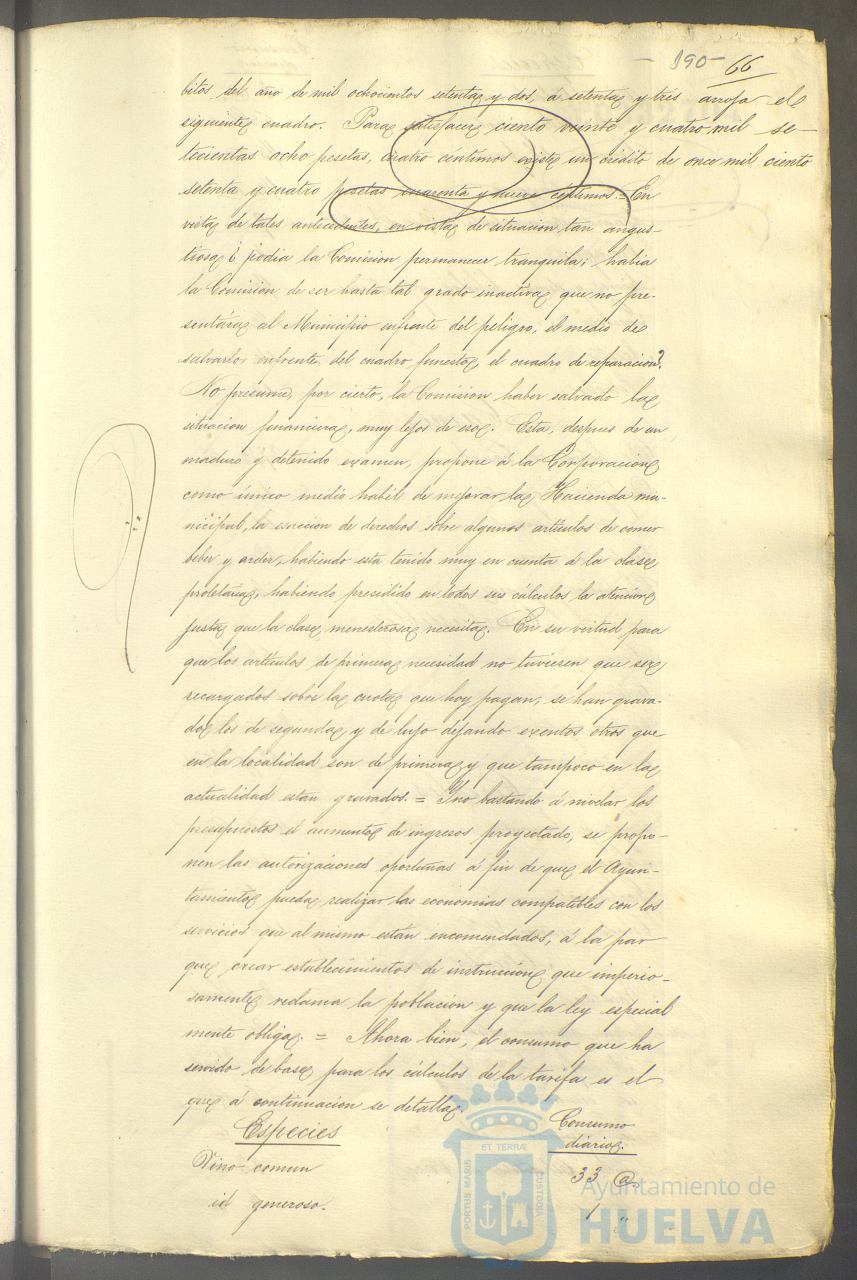 -190- 66
bitos del año de mil ochocientos setenta y dos, á setenta y tres arroja el
siguiente cuadro. Para satisfacer ciento veinte y cuatro mil se-
tecientas ocho pesetas, cuatro céntimos existe un crédito de once mil ciento
setenta y cuatro pesetas cuarenta y nueve céntimos. = En
vista de tales antecedentes, en vista de situacion tan angus-
tiosa ¿ podia la Comision permanecer tranquila; habia
la Comision de ser hasta tal grado inactiva que no pre-
sentára al Municipio enfrente del peligro, el medio de
salvarlo; enfrente del cuadro funesto, el cuadro de reparacion?
No presume, por cierto, la Comision haber salvado la
situacion financiera, muy lejos de eso. Esta, despues de un
maduro y detenido examen, propone á la Corporacion
como único medio habil de mejorar la Hacienda mu-
nicipal, la exaccion de derechos sobre algunos artículos de comer
beber y arder, habiendo esta tenido muy en cuenta á la clase
proletaria, habiendo presidido en todos sus cálculos la atencion
justa que la clase menesterosa necesita. En su virtud para
que los artículos de primera necesidad no tuviesen que ser
recargados sobre la cuota que hoy pagan, se han grava-
do los de segunda y de lujo dejando exentos otros que
en la localidad son de primera y que tampoco en la
actualidad están gravados. = Y no bastando á nivelar los
presupuestos el aumento de ingresos proyectado, se propo-
nen las autorizaciones oportunas á fin de que el Ayun-
tamiento pueda realizar las economías compatibles con los
servicios que al mismo están encomendados, á la par
que crear establecimientos de instruccion que imperio-
samente reclama la poblacion y que la ley especial
mente obliga. = Ahora bien, el consumo que ha
servido de base para los cálculos de la tarifa es el
que á continuacion se detalla.
Especies
Consumo
diario.
Vino comun 33 @.
id generoso. 1 "
PORTUS MARIS ET TERRÆ CUSTODIA
Ayuntamiento de
HUELVA